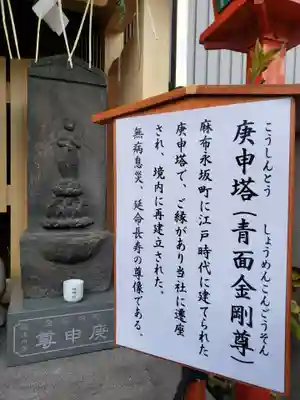 庚申塔(青面金剛尊)
こうしんとう
しょうめんこんごうそん
麻布永坂町に江戸時代に建てられた
庚申塔で、ご縁があり当社に遷座
され、境内に再建立された。
無病息災、延命長寿の尊像である。
庚申尊